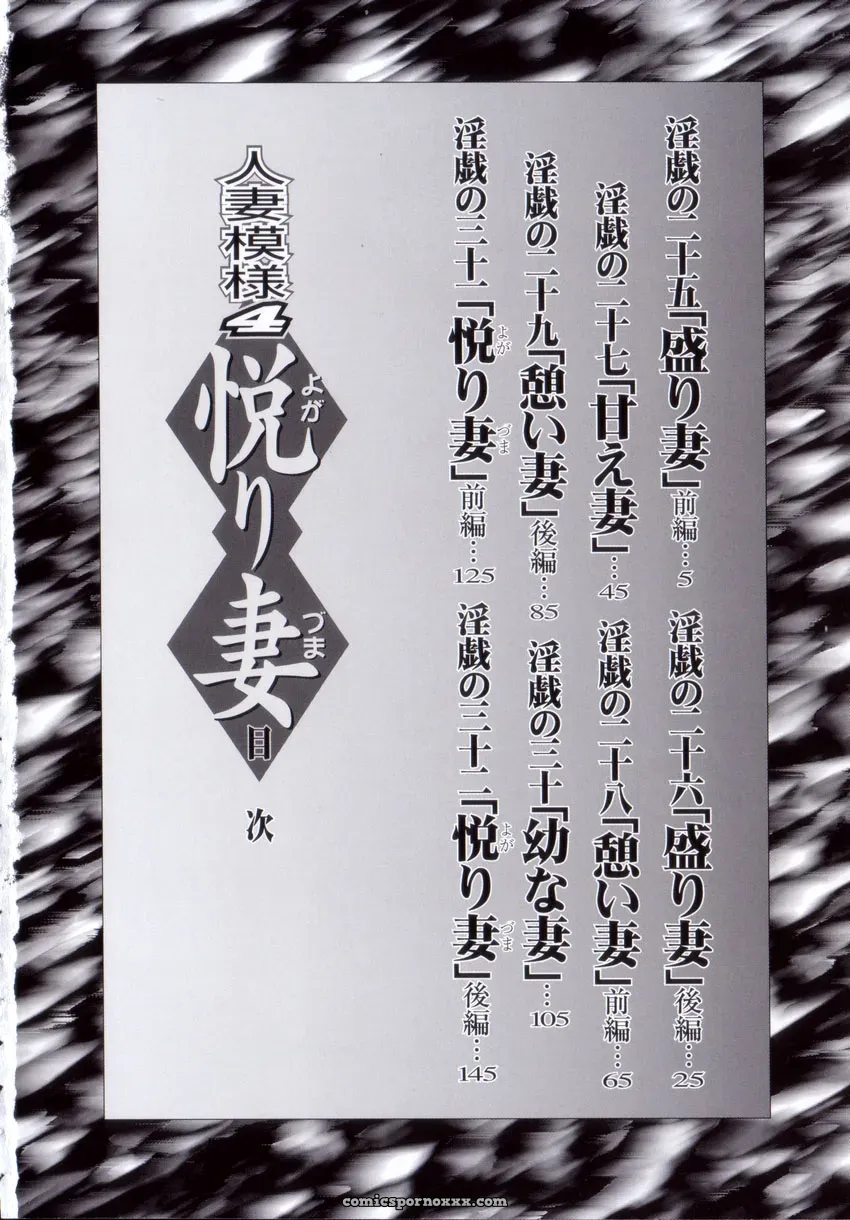 淫戯の二十五「盛り妻」前編…5
淫戯の二十六「盛り妻」後編…25
淫戯の二十七「甘え妻」…45
淫戯の二十八「憩い妻」前編…65
淫戯の二十九「憩い妻」後編…85
淫戯の三十「幼な妻」…105
淫戯の三十一「悦り妻」前編…125
よが づま
淫戯の三十二「悦り妻」後編…145
よが づま
人妻模様4
悦り妻
よが づま
目次
comicspornoxxx.com